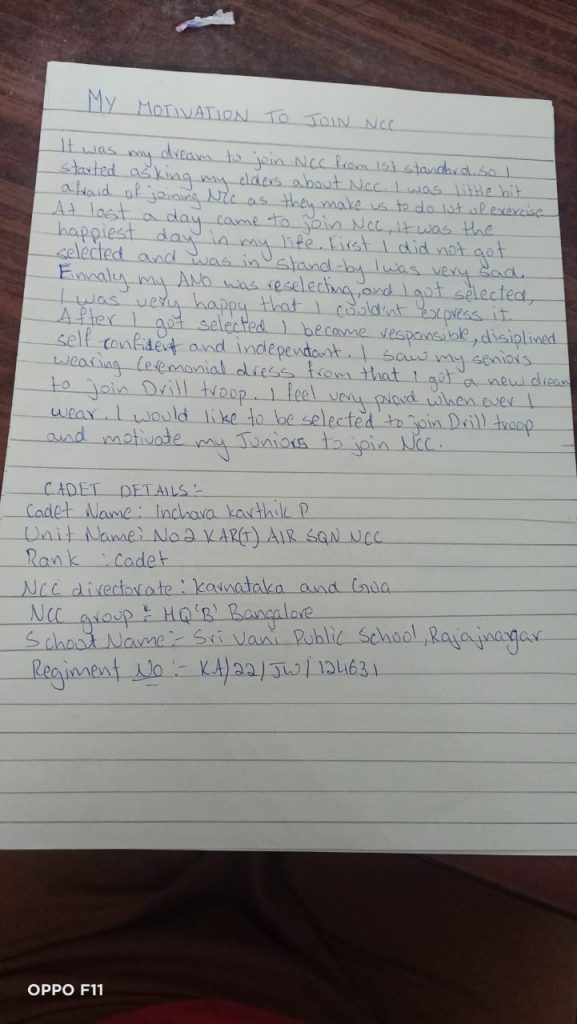 MY MOTIVATION TO JOIN NCC
It was my dream to join NCC from 1st standard.so I
started asking my elders about NCC. I was little bit
afraid of joining NCC as they make us to do lot of exercise
At last a day came to join NCC, it was the
happiest day in my life. First I did not got
selected and was in stand-by I was very sad.
Finnaly my ANO was reselecting, and I got selected,
I was very happy that I could'nt express it.
After I got selected I became responsible, disiplined
self confident and independant. I saw my seniors
wearing Ceremonial dress from that I got a new dream
to join Drill troop. I feel very proud when ever I
wear. I would like to be selected to join Drill troop
and motivate my Juniors to join NCC.
CADET DETAILS:-
Cadet Name: Inchara Karthik P
Unit Name: No 2 KAR(T) AIR SQN NCC
Rank : Cadet
NCC directorate : Karnataka and Goa
NCC group :- HQ 'B' Bangalore
School Name:- Sri Vani Public School, Rajajnagar
Regiment No :- KA/22/JW/124631
OPPO F11